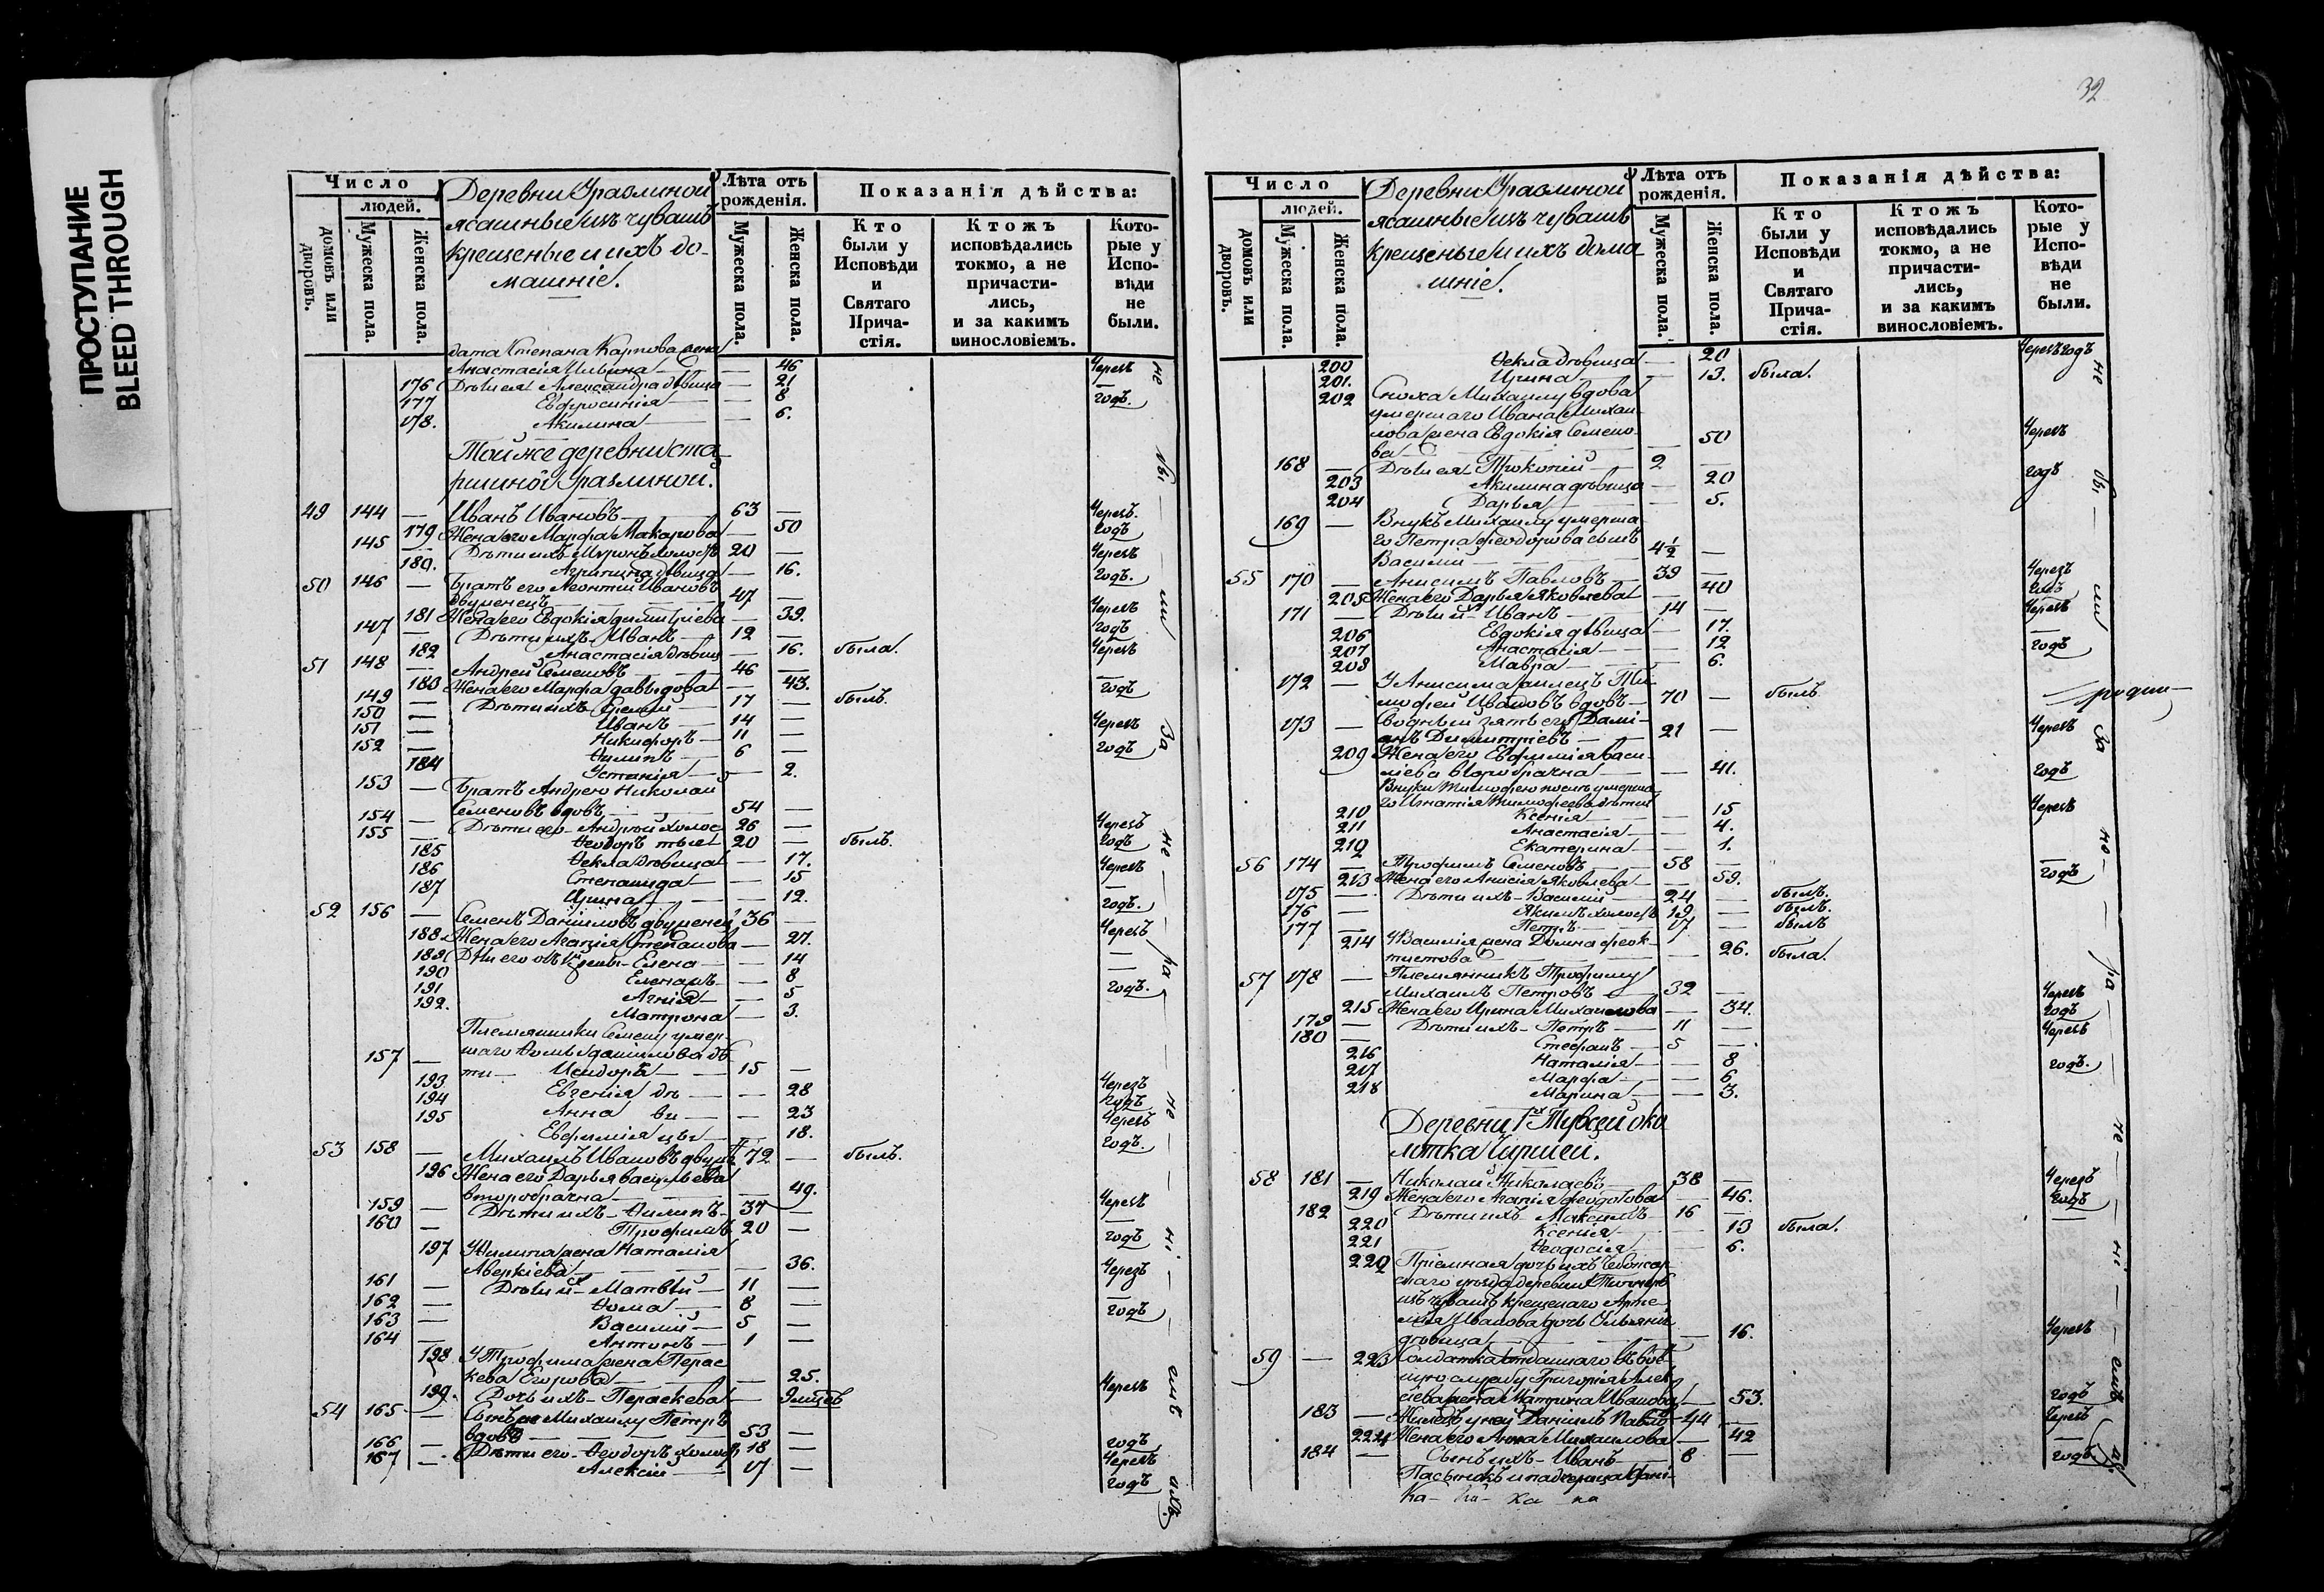 ПРОСТУПАНИЕ
BLEED THROUGH
Число
людей.
домовъ или дворовъ.
Мужеска пола.
Женска пола.
Деревни Уразлиной
ясашные изъ чувашъ
крещеные и ихъ до-
машніе.
Лѣта отъ рожденія.
Мужеска пола.
Женска пола.
Показанія дѣйства:
Кто были у Исповѣди и Святаго Прича-стія.
Ктожъ исповѣдались токмо, а не причасти-лись, и за какимъ винословіемъ.
Кото-рые у Испо-вѣди не были.
дата Степана Карпова жена
Анастасія Ильина — 46 Черезъ
176 Дѣти ея Александра дѣвица — 21
177 Евфросинія — 8 годъ.
178. Акилина — 6.
Той же деревни ста
ршиной Уразлиной.
49 144 — Иванъ Ивановъ — 63 — Черезъ.
179 Жена его Марфа Макарова — 50 годъ
145 — Дѣти ихъ Миронъ холостъ 20 — Черезъ
180. Агрипина дѣвица — 16. годъ.
50 146 — Братъ его Леонтій Ивановъ
двуженецъ — 47 —
181 Жена его Евдокія Димитріева — 39. Черезъ
147 — Дѣти ихъ Иванъ — 12 — годъ
182 Анастасія дѣвиц — 16. была. Черезъ
51 148 — Андрей Семеновъ — 46 —
183 Жена его Марфа Давыдова — 43. годъ
149 — Дѣти ихъ Еремѣй — 17 — былъ.
150 — Иванъ — 14 —
151 — Никифоръ — 11 — Черезъ
152 — Филипъ — 6 — годъ
184 Устинія — 2.
153 — Братъ Андрею Николай
Семеновъ вдовъ — 54 —
154 — Дѣти его Андрей холос 26 — Черезъ
155 — Ѳеодоръ тож 20 — былъ. годъ
185 Ѳекла дѣвица — 17. Черезъ
186 Степанида — 15
187 Ирина — 12. годъ.
52 156 — Семенъ Даниловъ двуженец 36 —
188 Жена его Агапія Степанова — 27. Черезъ
189 Дѣти его отъ 1й жены Елена — 14
190 Еленаръ — 8
191 Агнія — 5 годъ.
192. Матрона — 3.
Племянники Семену умер-
шаго Ѳомы Данилова дѣ
157 — ти Исидоръ — 15 —
193 Евгенія дѣ — 28 Черезъ
194 Анна ви — 23 годъ
195 Евфимія цы — 18. Черезъ
годъ.
53 158 — Михаилъ Ивановъ двуж 72 — былъ.
196 Жена его Дарья Васильева
второбрачна — 49.
159 — Дѣти ихъ Филипъ — 37 — Черезъ
160 — Трофимъ 20 —
197 У Филипа жена Наталія годъ
Аверкіева — 36.
161 — Дѣти их Матвѣй — 11 — Черезъ
162 — Ѳома — 8 —
163 — Василій — 5 — годъ
164 — Антонъ — 1 —
198 У Трофима жена Парас
кева Егорова — 25.
199. Дочь ихъ Параскева — Черезъ
54 165 — Сынъ же Михаилу Петръ
вдовъ — 53 —
166 — Дѣти его Ѳеодоръ холос 18 — годъ
167 — Алексій — 17 — Черезъ
годъ
не — бы — ли — за — не — ра — не — ні — емъ — ихъ.
32
Число
людей.
домовъ или дворовъ.
Мужеска пола.
Женска пола.
Деревни Уразлиной
ясашные изъ чувашъ
крещеные и ихъ дома
шніе.
Лѣта отъ рожденія.
Мужеска пола.
Женска пола.
Показанія дѣйства:
Кто были у Исповѣди и Святаго Прича-стія.
Ктожъ исповѣдались токмо, а не причасти-лись, и за какимъ винословіемъ.
Кото-рые у Испо-вѣди не были.
200 Ѳекла дѣвица — 20 Черезъ годъ
201. Ирина — 13. была.
202 Сноха Михаилу вдова
умершаго Ивана Михаи
лова жена Евдокія Семено
ва — 50 Черезъ
168 — Дѣти ея Прокопій — 2 —
203 Акилина дѣвица — 20 годъ
204 Дарья — 5.
169 — Внукъ Михаилу умерша
го Петра Ѳеодорова сынъ
Василій — 4½ —
55 170 — Анисимъ Павловъ — 39 — Черезъ
205 Жена его Дарья Яковлева — 40 годъ
171 — Дѣти их Иванъ — 14 — Черезъ
206 Евдокія дѣвица — 17.
207 Анастасія — 12 годъ
208 Мавра — 6.
172 — У Анисима жилецъ Ти
мофей Ивановъ вдовъ — 70 — былъ
173 — Сводный зять его Даміанъ Димитріевъ — 21 — Черезъ
209 Жена его Евфимія Васи
ліева второбрачна — 41. годъ
Внуки Тимофею
го Игнатія Тимофеева дѣти
210 Ксенія — 15 Черезъ
211 Анастасія — 4.
212 Екатерина — 1.
56 174 — Трофимъ Семеновъ — 58 —
213 Жена его Анисія Яковлева — 59. годъ
175 — Дѣти ихъ Василій — 24 — былъ.
176 — Якимъ холостъ 19 — былъ.
177 — Петръ — 17 — былъ
214 У Василія жена Домна Ѳеок-
тистова — 26. была.
57 178 — Племянникъ Трофиму
Михаилъ Петровъ — 32 — Черезъ
215 Жена его Ирина Михаилова — 34. годъ
179 — Дѣти ихъ Петръ — 11 — Черезъ
180 — Стефанъ — 5 —
216 Наталія — 8 годъ.
217 Марфа — 6
218 Марина — 3.
Деревни 1й Тувси око
лотка Чиршей.
58 181 — Николай Николаевъ — 38 — Черезъ
219 Жена его Агапія Ѳеодотова — 46. годъ
182 Дѣти ихъ Максимъ — 16 —
220 Ксенія — 13 была.
221 Ѳеодосія — 6.
222 Пріемная дочь ихъ Чебоксар
скаго уѣзда деревни
изъ чувашъ крещенаго Арте
мія Иванова дочь
дѣвица — 16. Черезъ
59 — 223 Солдатка отданнаго въ вое
нную службу Григорія Алек
сѣева жена Матрона Иванова — 53. годъ
183 — Жилецъ у ней Даніилъ Павло 44 — Черезъ
224 Жена его Анна Михаилова — 42
184 — Сынъ ихъ Иванъ — 8 — годъ.
Пасынокъ и падчерица Дани-
не — бы — ли — за — не — ра — не — ні — емъ